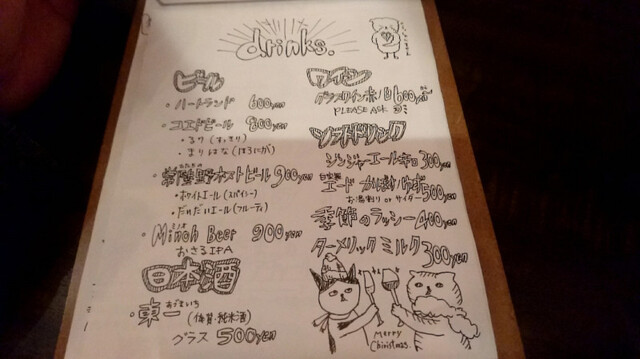 drinks.
ビール
・ハートランド 600yen
・コエドビール 800yen
・るり(すっきり)
・まりはな(ほろにが)
・常陸野ネストビール 900yen
・ホワイトエール(スパイシー)
・だいだいエール(フルーティ)
・Minoh Beer 900yen
おさるIPA
日本酒
・東一 (佐賀・純米酒)
あづまいち
グラス 500yen
ワイン
グラスワイン 赤/白 600yen
PLEASE ASK
ソフトドリンク
ジンジャーエール 300yen
自家製
エード 500yen
お湯割り or サイダー
季節のラッシー 400yen
ターメリックミルク 300yen
Merry
Christmas.